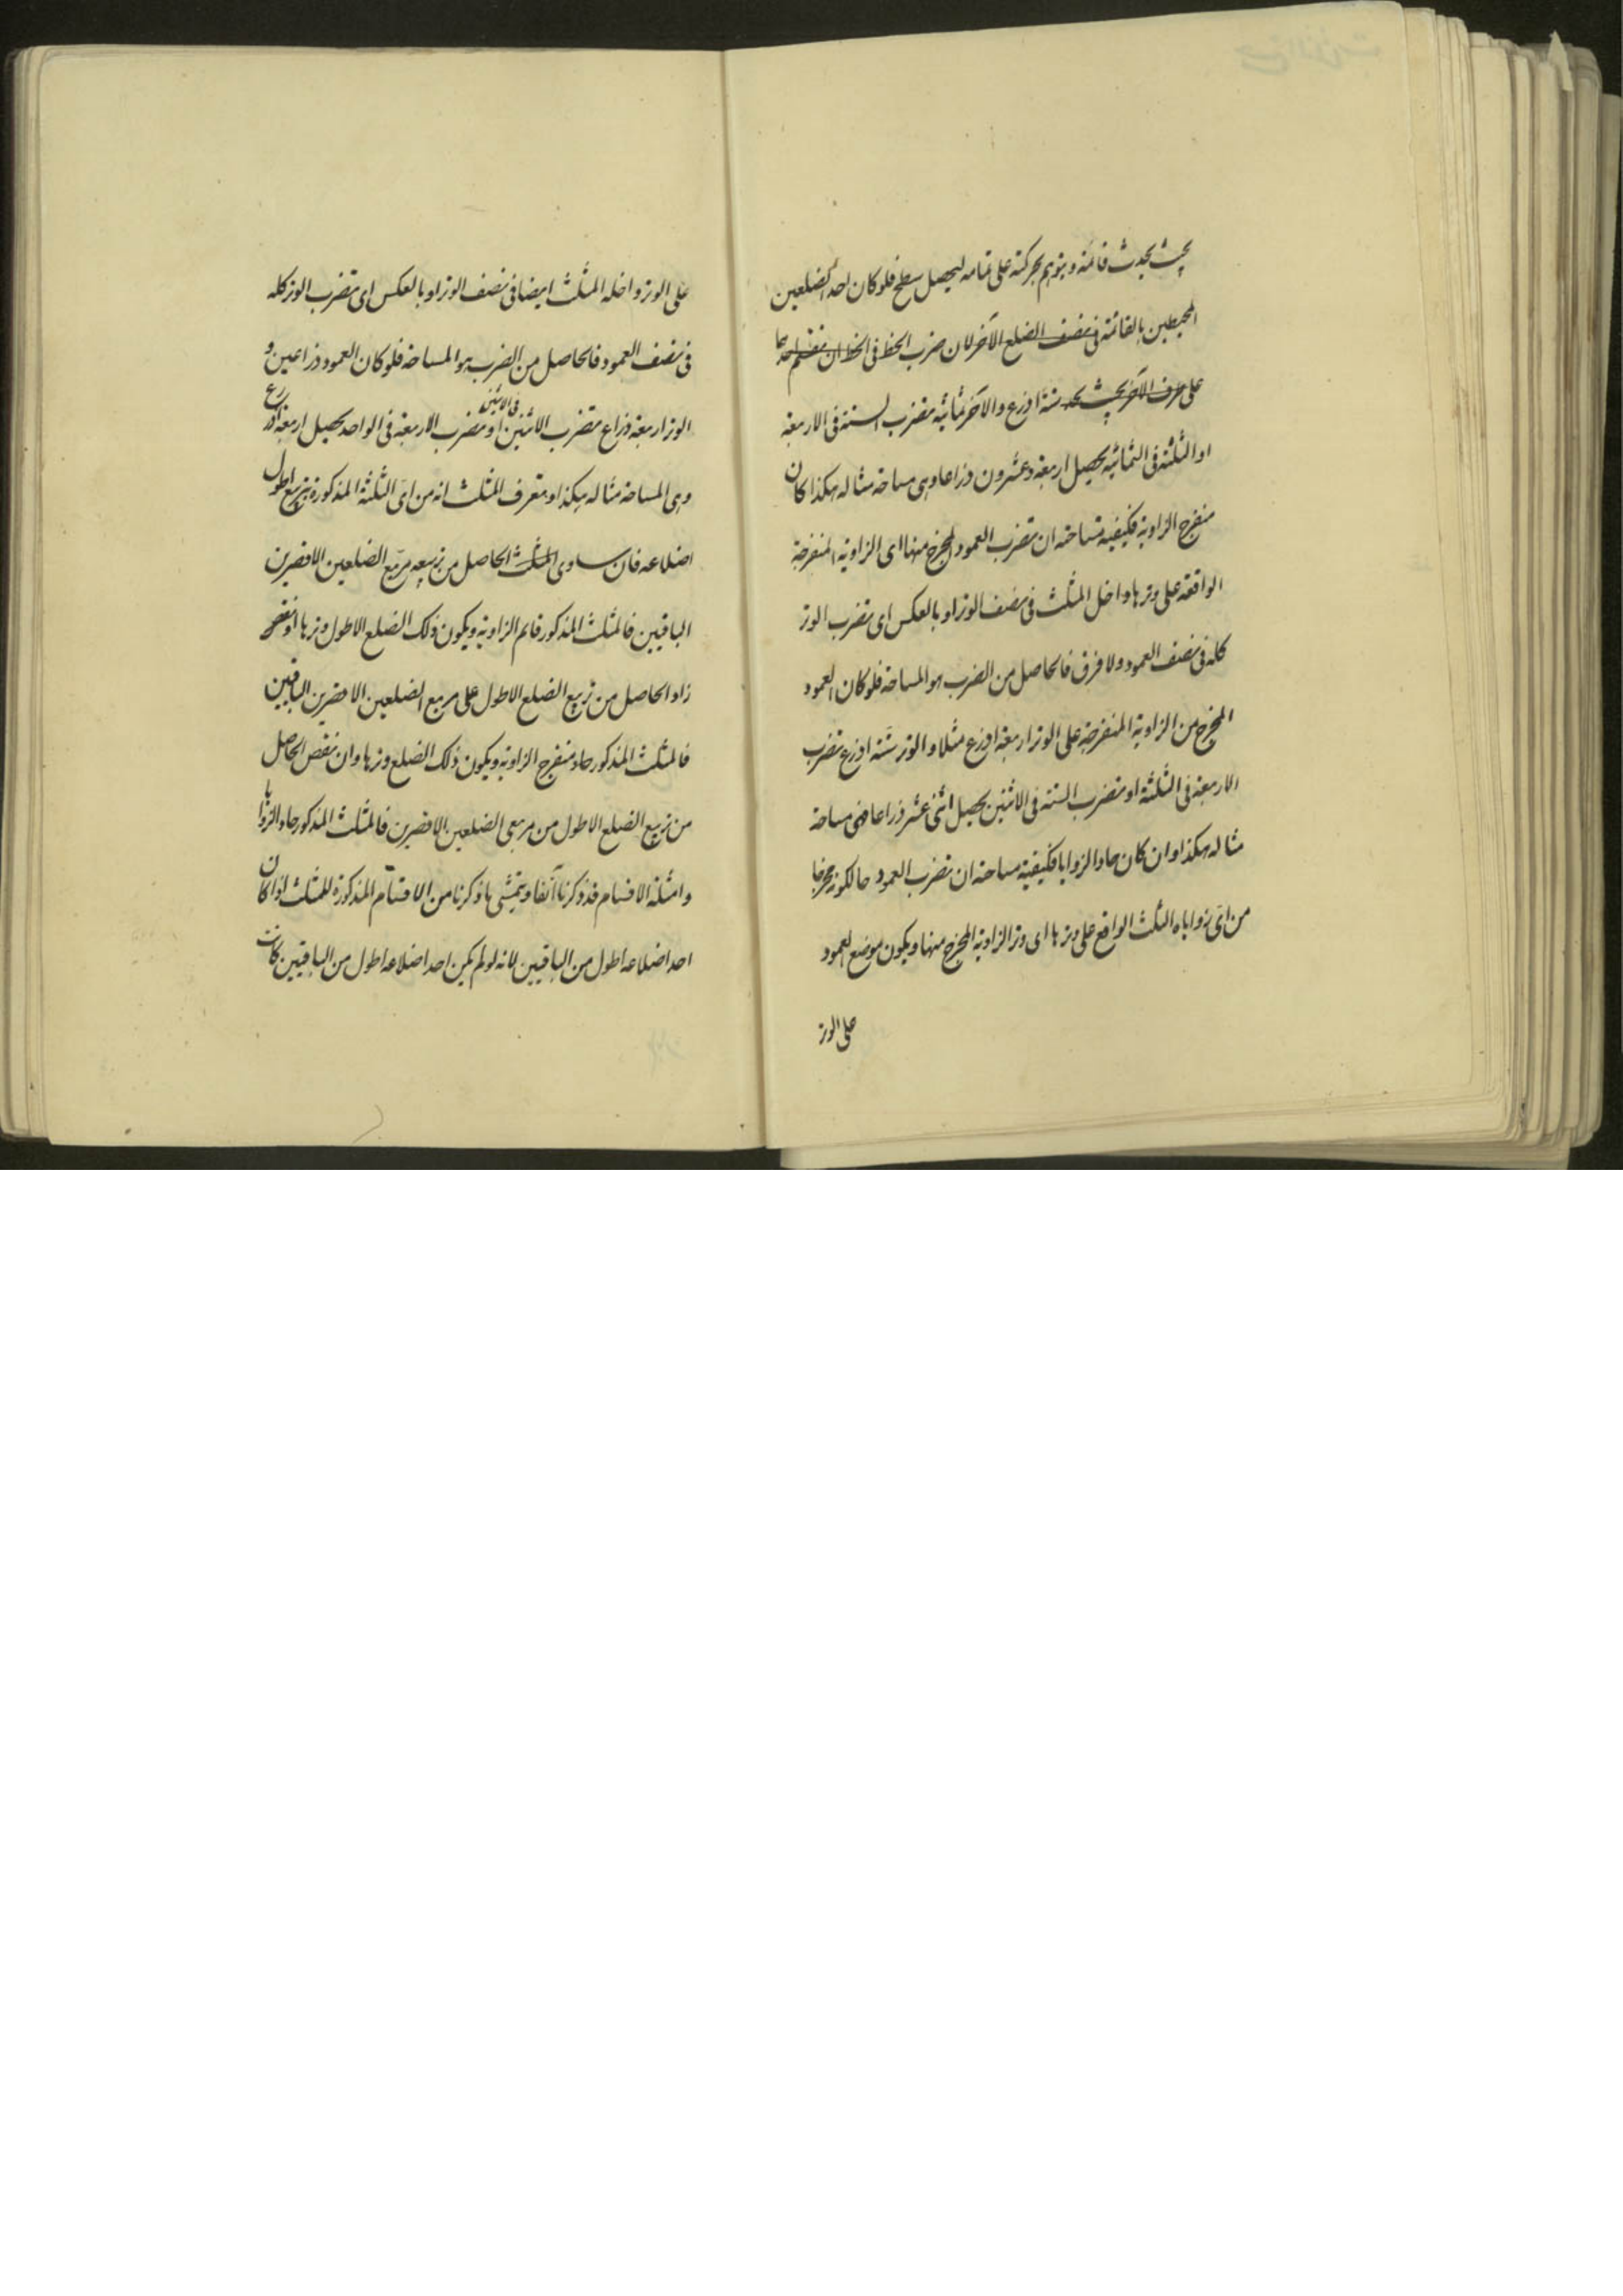 بحيث يحدث قائمة ويتوهم بحركته على تمامه ليحصل سطح فلو كان احد الضلعين
المحيطين بالقائمة فى نصف الضلع الآخر لان ضرب الخط فى الخط ان
على طرف الآخر بحيث يحد ستة اذرع والآخر ثمانية تضرب الستة فى الاربعة
او الثلثة فى الثمانية يحصل اربعة وعشرون ذراعا وهى مساحة مثاله هكذا كان
منفرج الزاوية فكيفية مساحته ان تضرب العمود المخرج منها اى الزاوية المنفرجة
الواقعة على وترها داخل المثلث فى نصف الوتر او بالعكس اى تضرب الوتر
كله فى نصف العمود ولا فرق فالحاصل من الضرب هو المساحة فلو كان العمود
المخرج من الزاوية المنفرجة على الوتر اربعة اذرع مثلا والوتر ستة اذرع تضرب
الاربعة فى الثلثة او تضرب الستة فى الاثنين يحصل اثنى عشر ذراعا فهى مساحة
مثاله هكذا وان كان حاد الزوايا فكيفية مساحته ان تضرب العمود حالكونه مخرجا
من اىّ زواياه الثلث الواقع على وترها اى وتر الزاوية المخرج منها ويكون موضع العمود
على الوتر
على الوتر داخله المثلث ايضا فى نصف الوتر او بالعكس اى تضرب الوتر كله
فى نصف العمود فالحاصل من الضرب هو المساحة فلو كان العمود ذراعين و
الوتر اربعة ذراع تضرب الاثنين فى الاثنين او تضرب الاربعة فى الواحد يحصل اربعة اذرع
وهى المساحة مثاله هكذا وتعرف المثلث انه من اىّ الثلثة المذكورة بتربيع اطول
اضلاعه فان ساوى المثلث الحاصل من تربيعه مربّع الضلعين الاقصرين
الباقيين فالمثلث المذكور قائم الزاوية ويكون ذلك الضلع الاطول وترها او نقص
زاد الحاصل من تربيع الضلع الاطول على مربع الضلعين الاقصرين الباقيين
فالمثلث المذكور حاد منفرج الزاوية ويكون ذلك الضلع وترها وان نقص الحاصل
من تربيع الضلع الاطول من مربعى الضلعين الاقصرين فالمثلث المذكور حاد الزوايا
وامثلة الاقسام قد ذكرنا آنفا ويتمشى ما ذكرنا من الاقسام المذكورة للمثلث اذا كان
احد اضلاعه اطول من الباقيين لانه لو لم يكن احد اضلاعه اطول من الباقيين كانت